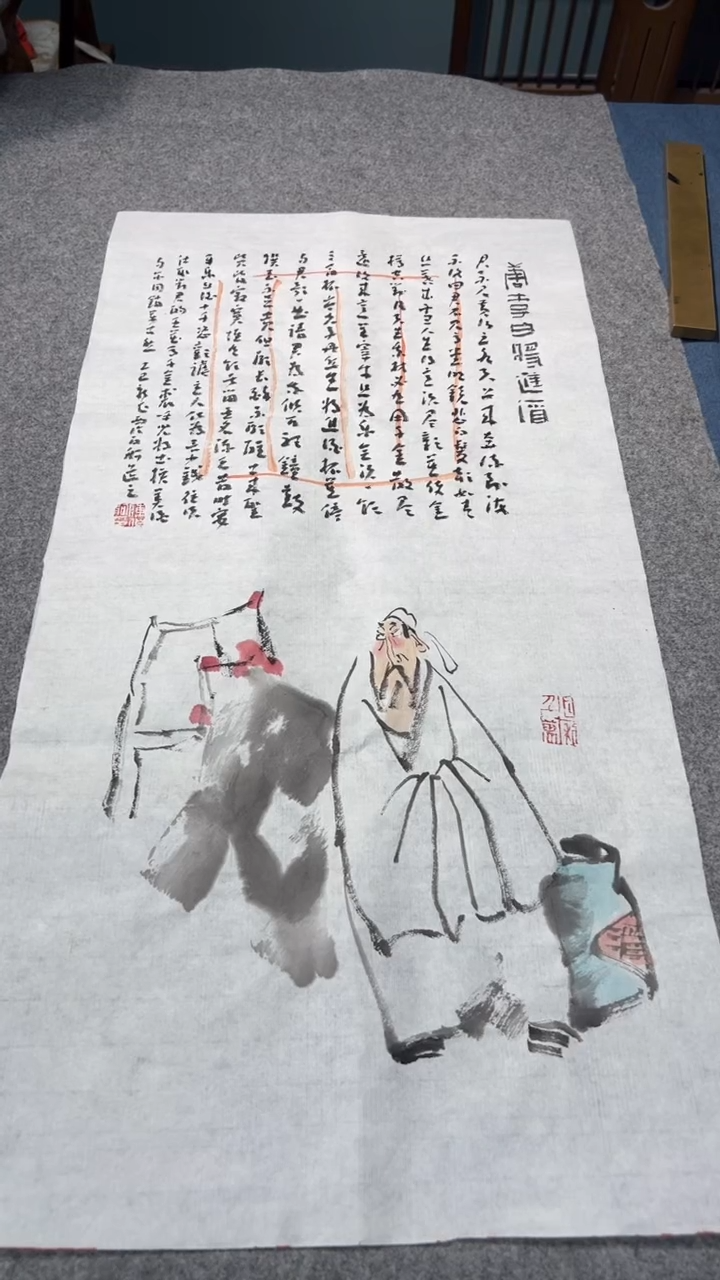 唐李白將進酒
君不見黃河之水天上來奔流到海
不復回君不見高堂明鏡悲白髮朝如青
絲暮成雪人生得意須盡歡莫使金
樽空對月天生我材必有用千金散盡
還復來烹羊宰牛且為樂會須一飲
三百杯岑夫子丹丘生將進酒杯莫停
與君歌一曲請君為我傾耳聽鐘鼓
饌玉不足貴但願長醉不願醒古來聖
賢皆寂寞惟有飲者留其名陳王昔時宴
平樂斗酒十千恣歡謔主人何為言少錢徑須
沽取對君酌五花馬千金裘呼兒將出換美酒
與爾同銷萬古愁 乙巳秋